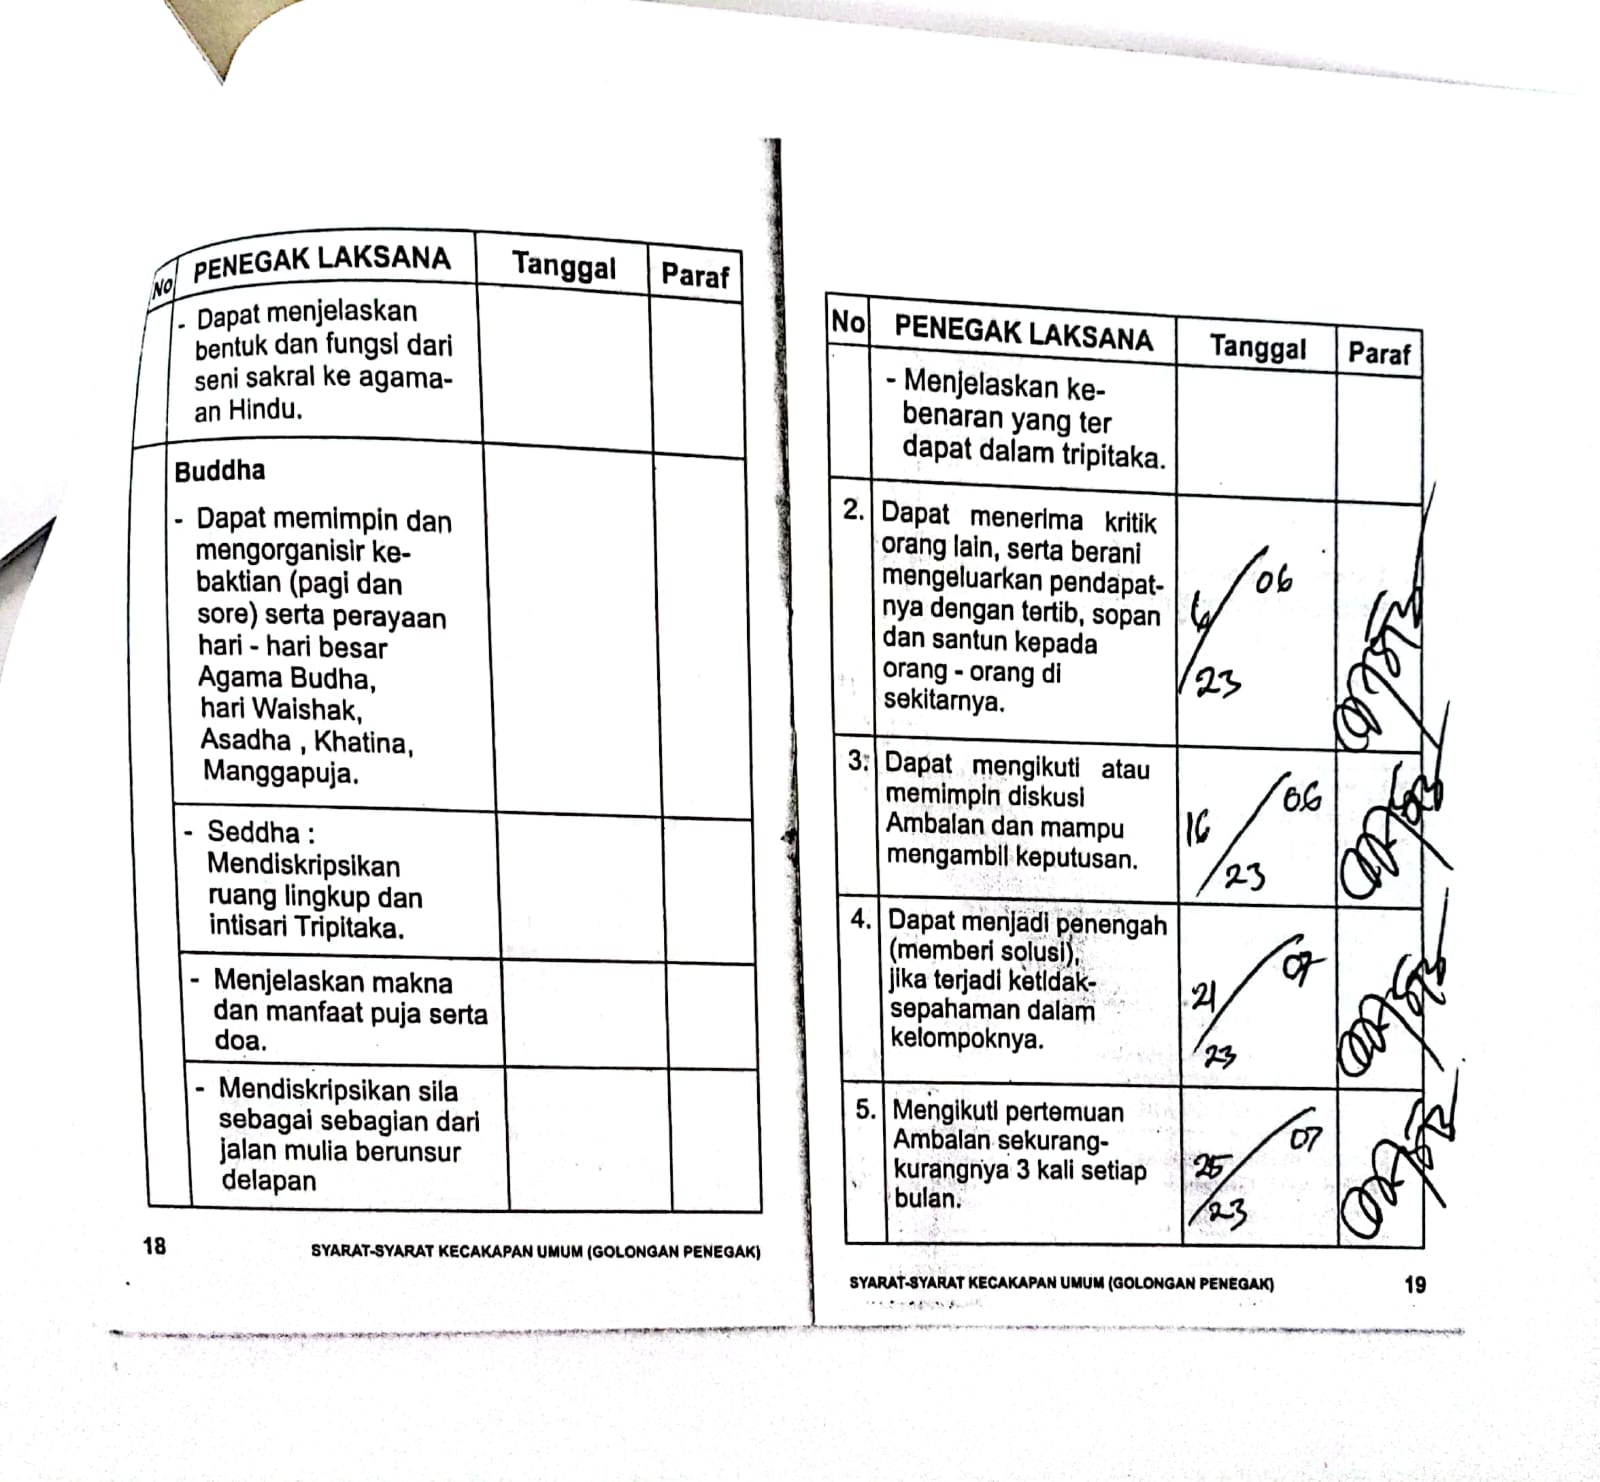 No PENEGAK LAKSANA Tanggal Paraf
- Dapat menjelaskan
bentuk dan fungsi dari
seni sakral ke agama-
an Hindu.
Buddha
- Dapat memimpin dan
mengorganisir ke-
baktian (pagi dan
sore) serta perayaan
hari - hari besar
Agama Budha,
hari Waishak,
Asadha , Khatina,
Manggapuja.
- Seddha :
Mendiskripsikan
ruang lingkup dan
intisari Tripitaka.
- Menjelaskan makna
dan manfaat puja serta
doa.
- Mendiskripsikan sila
sebagai sebagian dari
jalan mulia berunsur
delapan
18 SYARAT-SYARAT KECAKAPAN UMUM (GOLONGAN PENEGAK)
No PENEGAK LAKSANA Tanggal Paraf
- Menjelaskan ke-
benaran yang ter
dapat dalam tripitaka.
2. Dapat menerima kritik
orang lain, serta berani
mengeluarkan pendapat-
nya dengan tertib, sopan
dan santun kepada
orang - orang di
sekitarnya.
6/06
/23
3. Dapat mengikuti atau
memimpin diskusi
Ambalan dan mampu
mengambil keputusan.
16/06
/23
4. Dapat menjadi penengah
(memberi solusi),
jika terjadi ketidak-
sepahaman dalam
kelompoknya.
21/07
/23
5. Mengikuti pertemuan
Ambalan sekurang-
kurangnya 3 kali setiap
bulan.
25/07
/23
SYARAT-SYARAT KECAKAPAN UMUM (GOLONGAN PENEGAK) 19